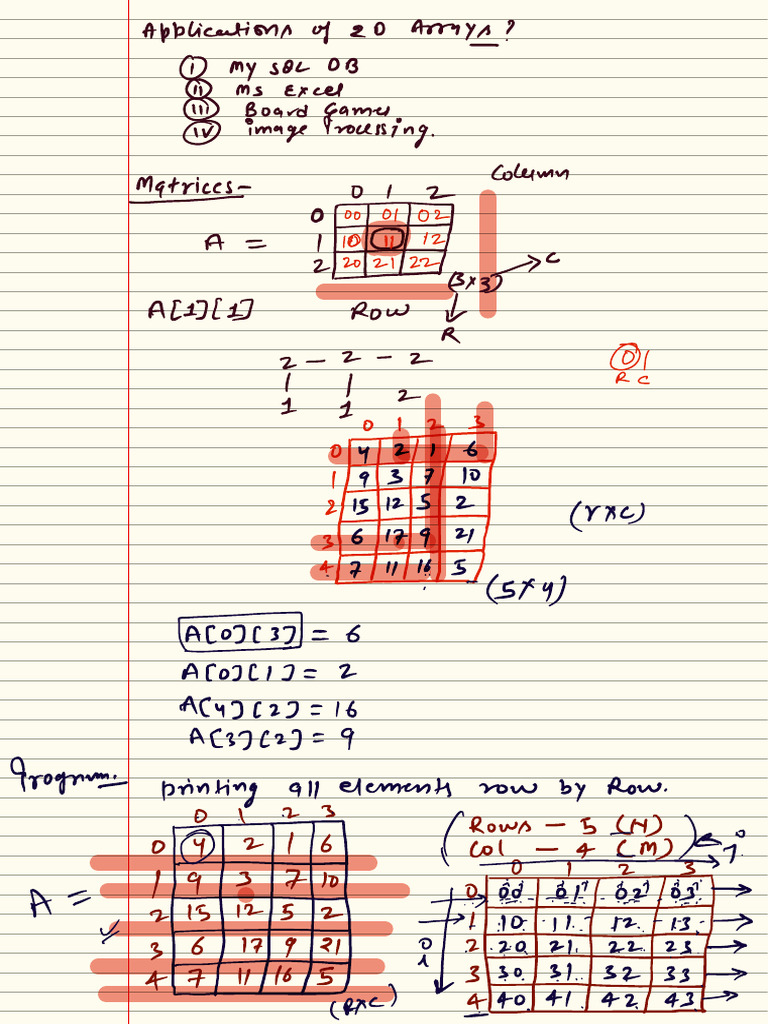 Applications of 2D Arrays?
(i) My SQL DB
(ii) Ms Excel
(iii) Board Games
(iv) image Processing.
Matrices-
Column
0 1 2
0 00 01 02
A = 1 10 11 12
2 20 21 22
(3×3) → C
A[1][1] Row
R
2 - 2 - 2
1 1 2
01
R C
0 1 2 3
0 4 2 1 6
1 9 3 7 10
2 15 12 5 2
(r×c)
3 6 17 9 21
4 7 11 16 5
(5×4)
A[0][3] = 6
A[0][1] = 2
A[4][2] = 16
A[3][2] = 9
Program. Printing all elements row by Row.
(Rows - 5 (N)
Col - 4 (M)) j
0 1 2 3
0 4 2 1 6
1 9 3 7 10
A =
2 15 12 5 2
3 6 17 9 21
4 7 11 16 5
(R×C)
0 1 2 3
0 00 01 02 03
1 10 11 12 13
2 20 21 22 23
i
3 30 31 32 33
4 40 41 42 43